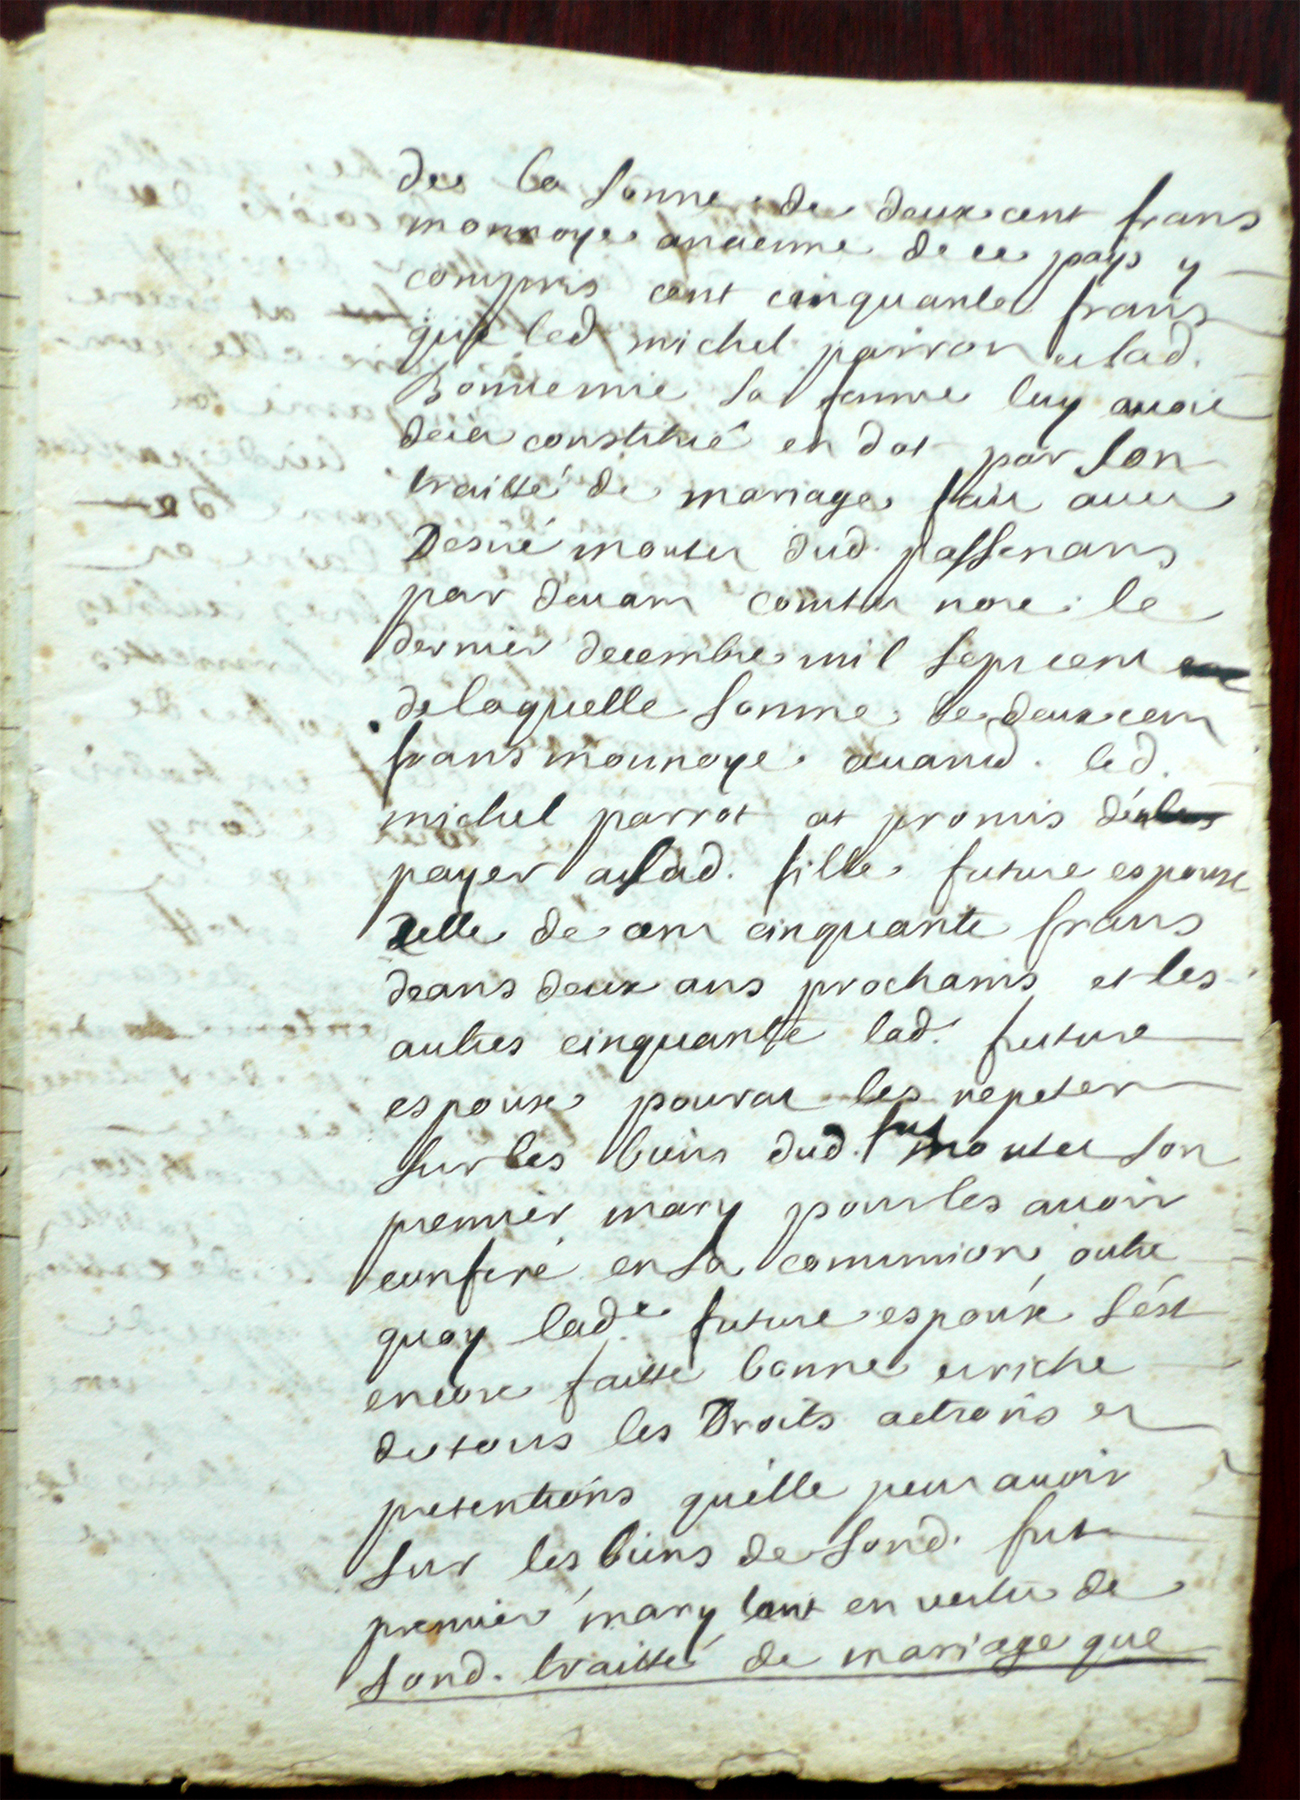 de la somme de deux cent frans
monnoye ancienne de ce pays y
compris cent cinquante frans
que led michel parrot et lad.
sa femme luy avoit
deia constitué en dot par son
traitté de mariage fait avec
Desiré moutet dud. passenans
par devant nore. le
dernier decembre mil sept cent
de laquelle somme de deux cent
frans monnoye avand. led.
michel parrot at promis
payer a lad. fille future espouse
celle de cent cinquante frans
deans deux ans prochains et les
autres cinquante lad. future
espouse pourat les repeter
sur les biens dud. fut moutet son
premier mary pour les avoir
conferé en sa communion outre
quoy lad.e future espouse s'ést
encore faitte bonne et riche
de tous les Droits actions et
pretentions qu'elle peut avoir
sur les biens de sond. fut
premier mary tant en vertu de
sond. traitté de mariage que